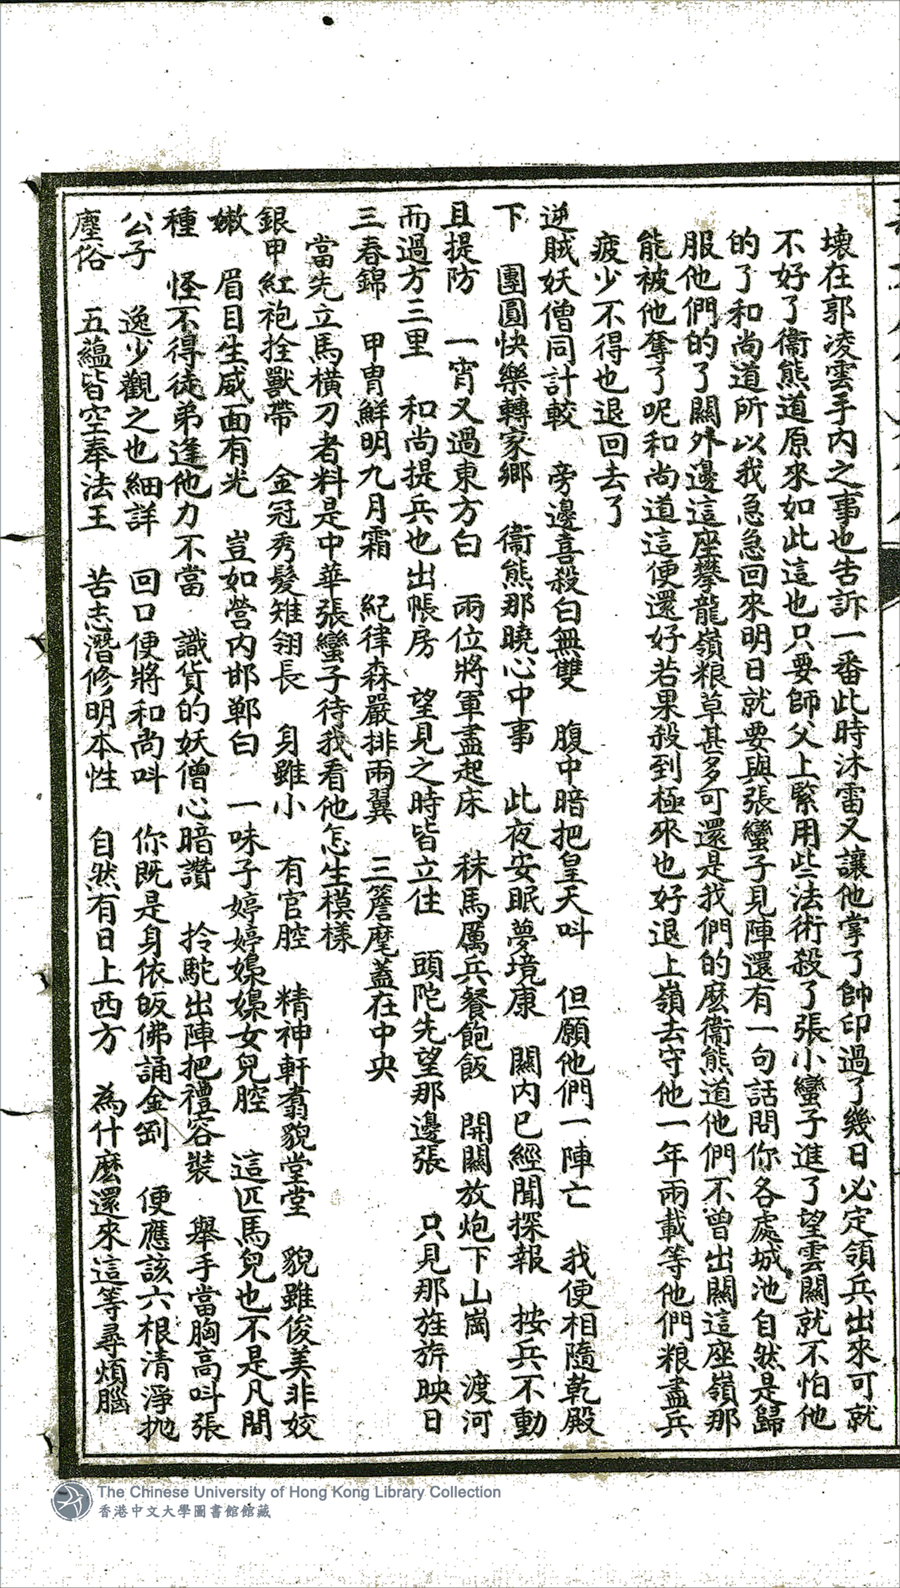 壞在郭凌雲手內之事也告訴一番此時沐雷又讓他掌了帥印過了幾日必定領兵出來可就
不好了衞熊道原來如此這也只要師父上緊用些法術殺了張小蠻子進了望雲關就不怕他
的了和尚道所以我急急回來明日就要與張蠻子見陣還有一句話問你各處城池自然是歸
服他們的了關外邊這座攀龍嶺粮草甚多可還是我們的麽衞熊道他們不曾出關這座嶺那
能被他奪了呢和尚道這便還好若果殺到極來也好退上嶺去守他一年兩載等他們粮盡兵
疲少不得也退回去了
逆賊妖僧同計較　旁邊喜殺白無雙　腹中暗把皇天呌　但願他們一陣亡　我便相隨乾殿
下　團圓快樂轉家鄉　衞熊那曉心中事　此夜安眠夢境康　關內已經聞探報　按兵不動
且提防　一宵又過東方白　兩位將軍盡起床　秣馬厲兵餐飽飯　開關放炮下山崗　渡河
而過方三里　和尚提兵也出帳房　望見之時皆立住　頭陀先望那邊張　只見那旌旂映日
三春錦　甲冑鮮明九月霜　紀律森嚴排兩翼　三簷麾蓋在中央
當先立馬橫刀者料是中華張蠻子待我看他怎生模樣
銀甲紅袍拴獸帶　金冠秀髮雉翎長　身雖小　有官腔　精神軒翥貌堂堂　貌雖俊美非姣
嫩　眉目生威面有光　豈如營內邯鄲白　一味子婷婷嬝嬝女兒腔　這匹馬兒也不是凡間
種　怪不得徒弟逢他力不當　識貨的妖僧心暗讚　拎駝出陣把禮容裝　舉手當胸高呌張
公子　逸少觀之也細詳　回口便將和尚呌　你既是身依皈佛誦金剛　便應該六根清淨拋
塵俗　五蘊皆空奉法王　苦志潛修明本性　自然有日上西方　為什麽還來這等尋煩腦
The Chinese University of Hong Kong Library Collection
香港中文大學圖書館館藏